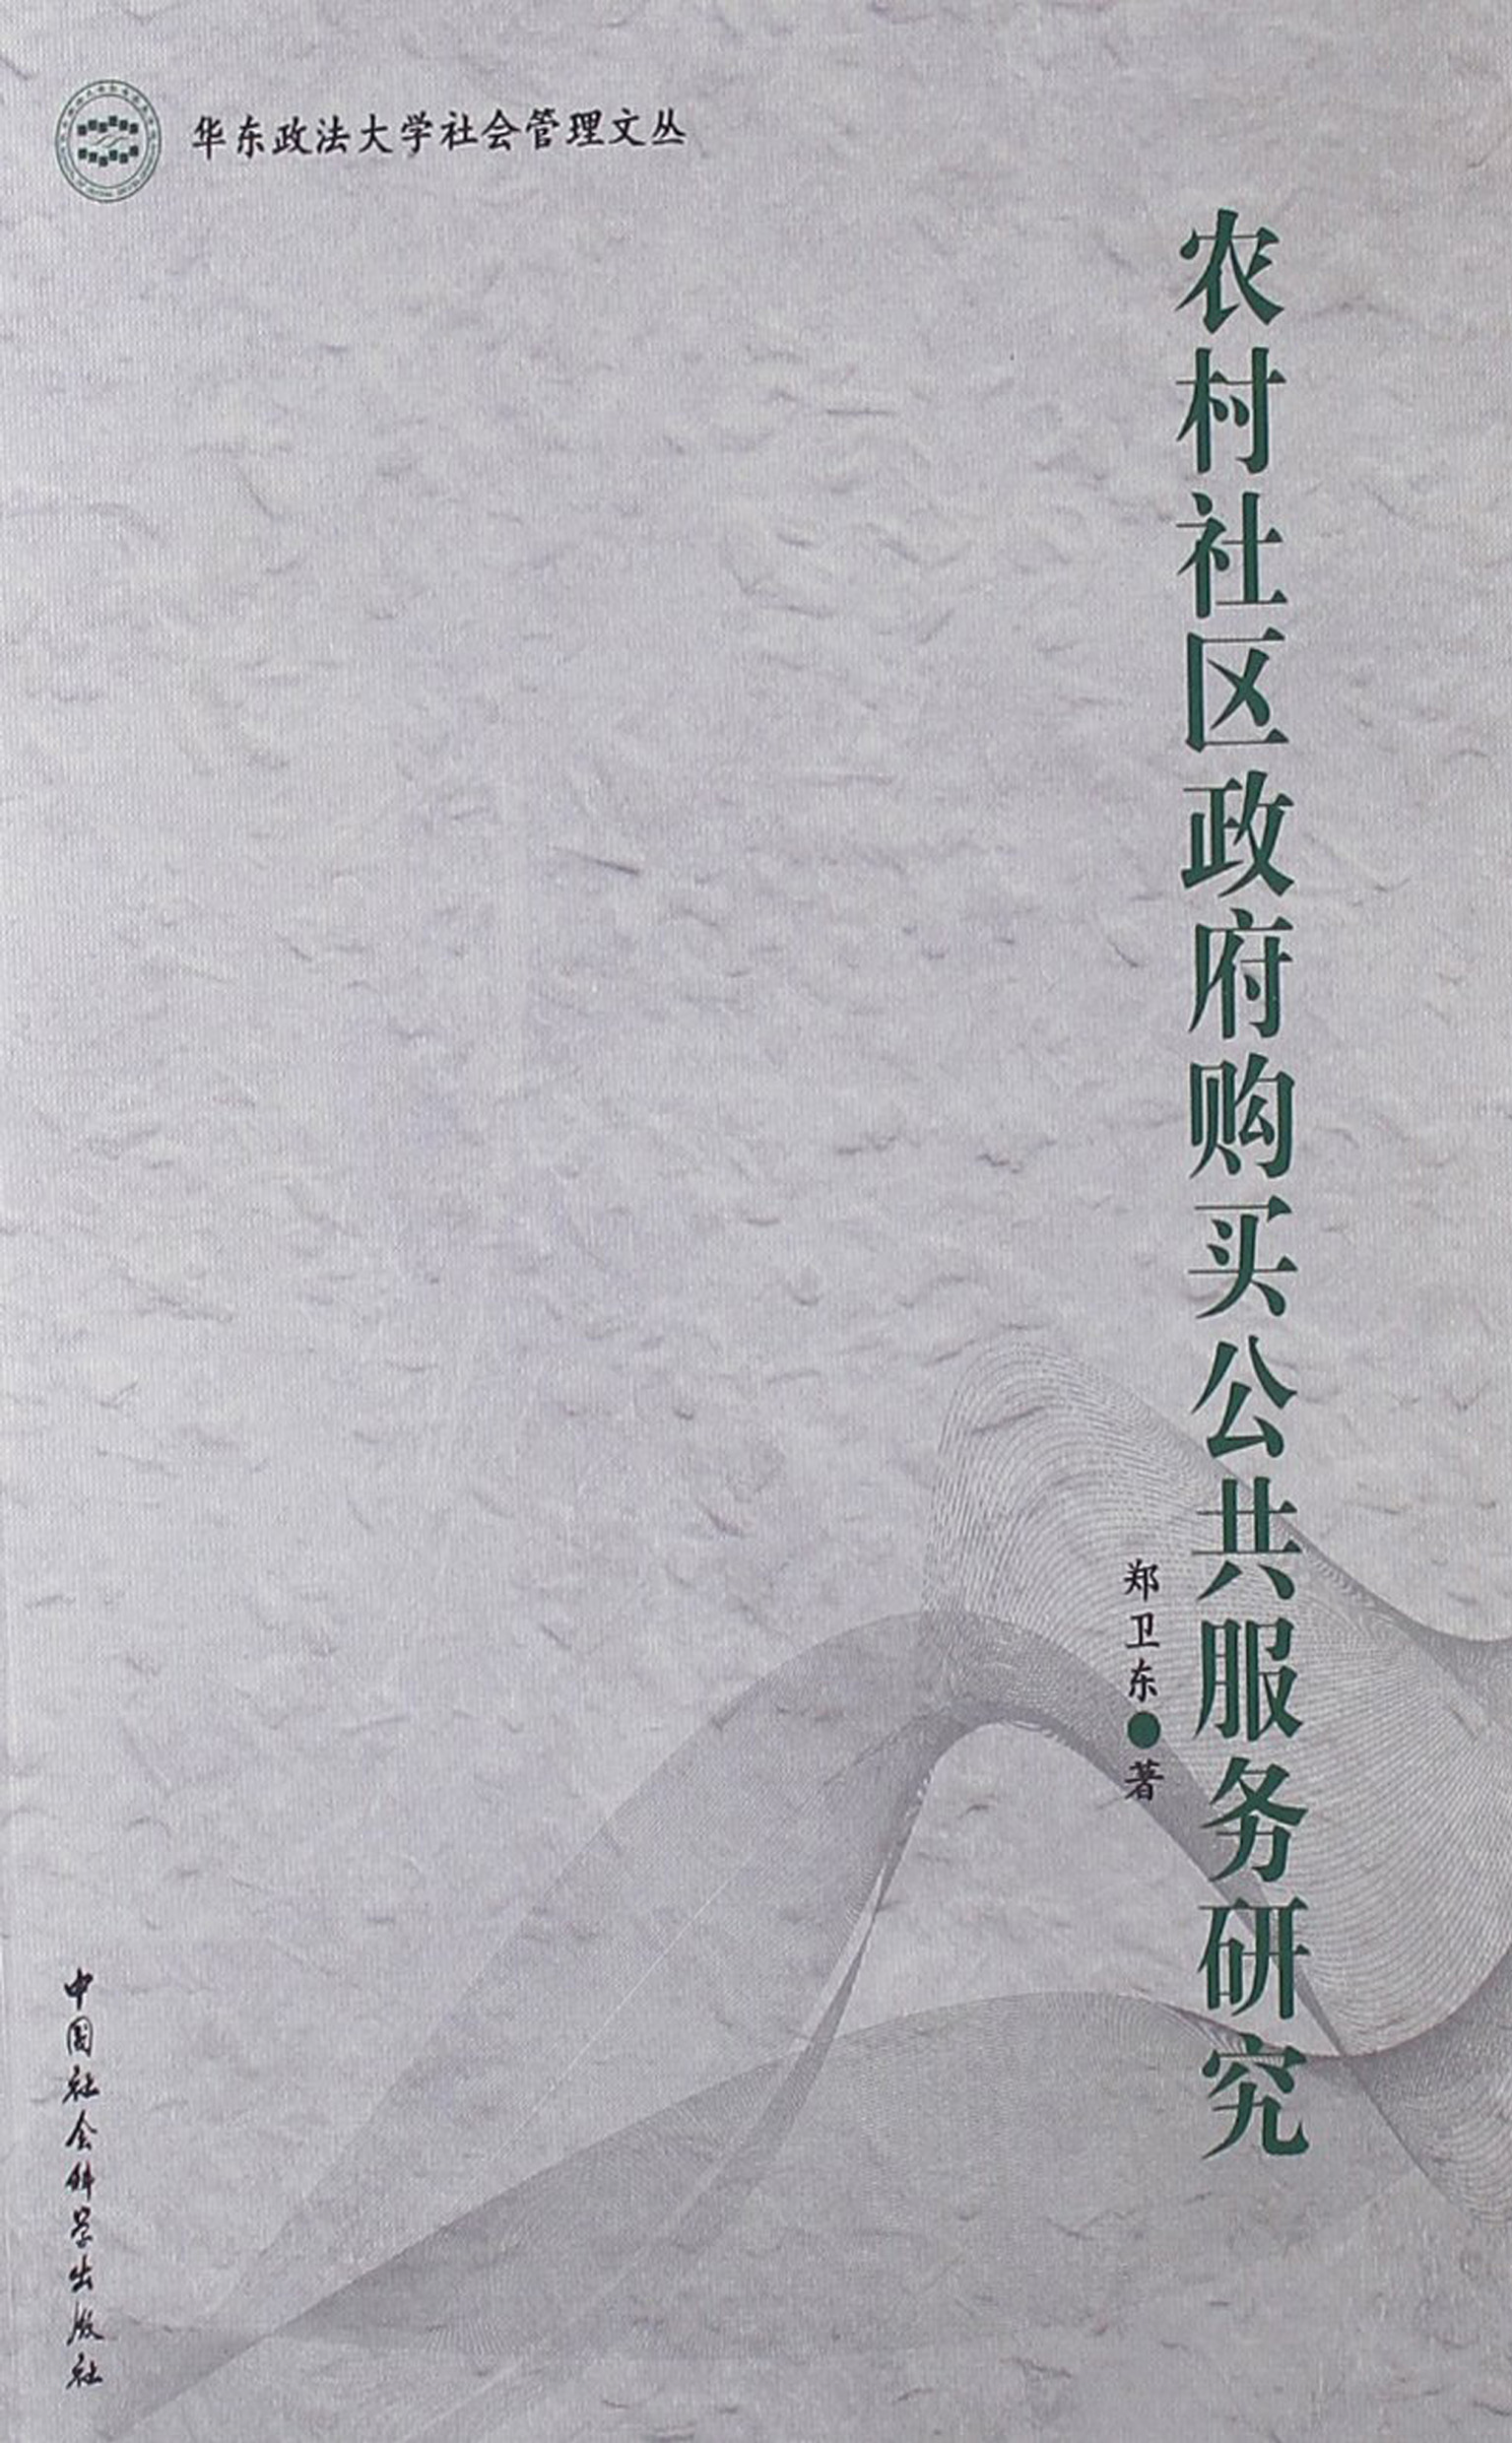 华东政法大学社会管理文丛
农村社区政府购买公共服务研究
郑卫东●著
中国社会科学出版社